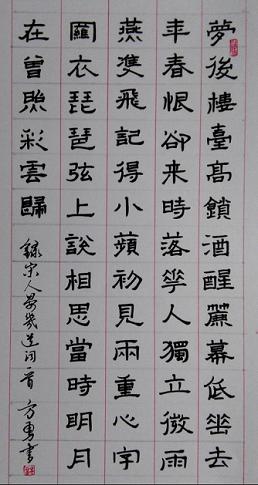 夢後樓臺高鎖酒醒簾幕低垂去
年春恨卻来時落華人獨立微雨
燕雙飛記得小蘋初見兩重心字
羅衣琵琶弦上說相思當時明月
在曾照彩雲歸
錄宋人晏幾道詞一首 方勇書